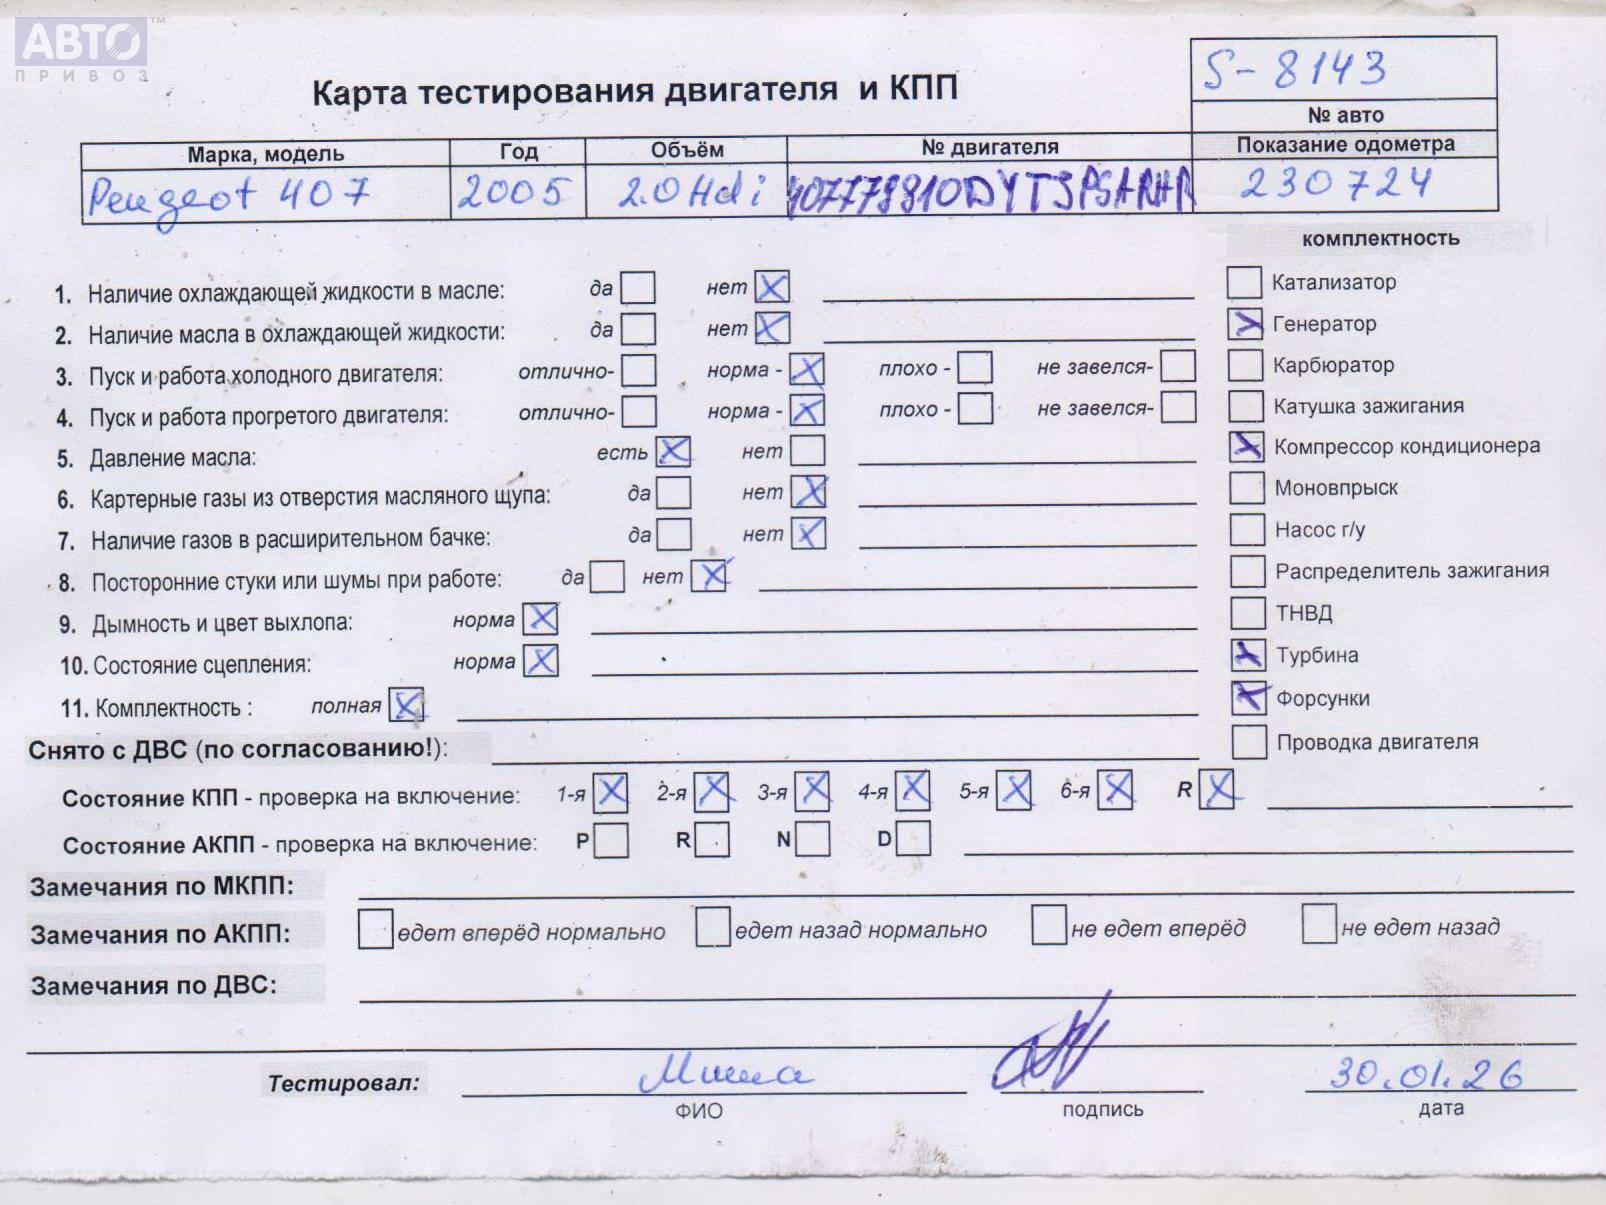 АВТО™
ПРИВОЗ
S-8143
Карта тестирования двигателя и КПП
№ авто
Марка, модель Год Объём № двигателя Показание одометра
Peugeot 407 2005 2.0 Hdi 230724
комплектность
1. Наличие охлаждающей жидкости в масле: да нет X Катализатор
2. Наличие масла в охлаждающей жидкости: да нет X Генератор X
3. Пуск и работа холодного двигателя: отлично- норма - X плохо - не завелся- Карбюратор
4. Пуск и работа прогретого двигателя: отлично- норма - X плохо - не завелся- Катушка зажигания
5. Давление масла: есть X нет X Компрессор кондиционера
6. Картерные газы из отверстия масляного щупа: да нет X Моновпрыск
7. Наличие газов в расширительном бачке: да нет X Насос г/у
8. Посторонние стуки или шумы при работе: да нет X Распределитель зажигания
9. Дымность и цвет выхлопа: норма X ТНВД
10. Состояние сцепления: норма X X Турбина
11. Комплектность : полная X X Форсунки
Снято с ДВС (по согласованию!): Проводка двигателя
Состояние КПП - проверка на включение: 1-я X 2-я X 3-я X 4-я X 5-я X 6-я X R X
Состояние АКПП - проверка на включение: P R N D
Замечания по МКПП:
Замечания по АКПП: едет вперёд нормально едет назад нормально не едет вперёд не едет назад
Замечания по ДВС:
Тестировал: Миша 30.01.26
ФИО подпись дата